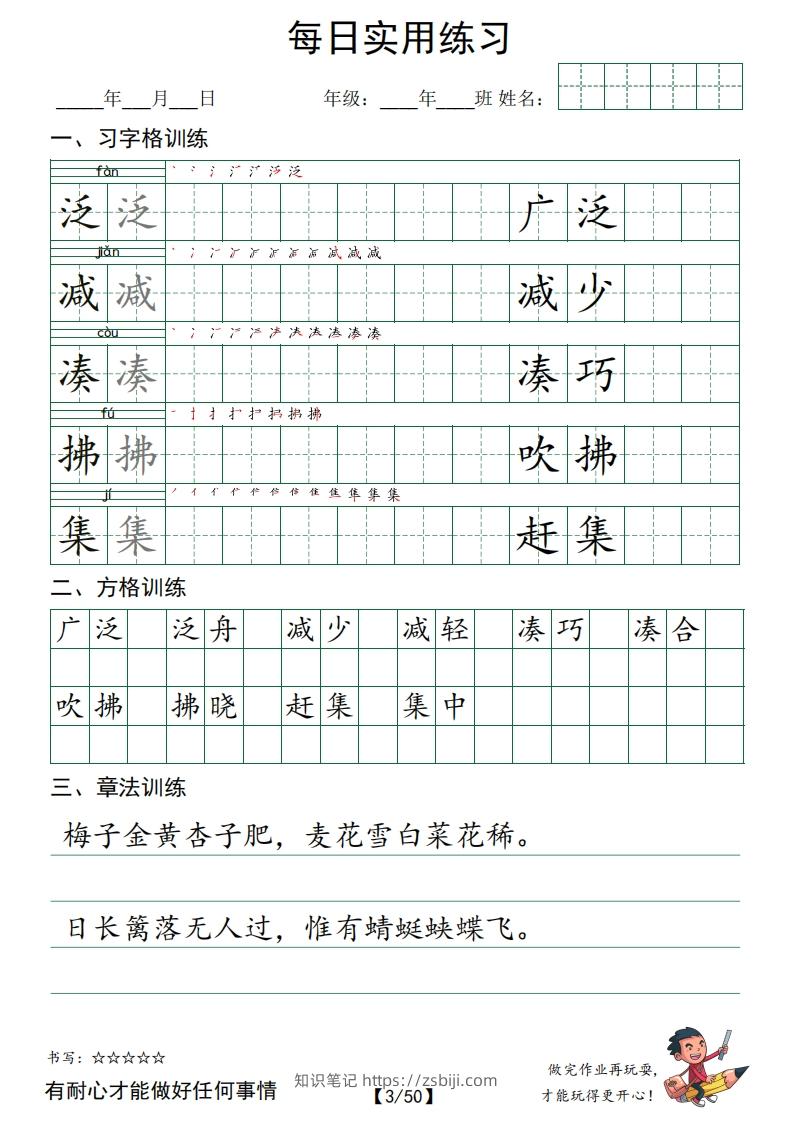 每日实用练习
_____年___月___日 年级：____年____班 姓名：
一、习字格训练
fàn
泛 泛 广 泛
jiǎn
减 减 减 少
còu
凑 凑 凑 巧
fú
拂 拂 吹 拂
jí
集 集 赶 集
二、方格训练
广 泛 泛 舟 减 少 减 轻 凑 巧 凑 合
吹 拂 拂 晓 赶 集 集 中
三、章法训练
梅子金黄杏子肥，麦花雪白菜花稀。
日长篱落无人过，惟有蜻蜓蛱蝶飞。
书写：☆☆☆☆☆
有耐心才能做好任何事情
知识笔记 https://zsbiji.com
【3/50】
做完作业再玩耍，
才能玩得更开心！